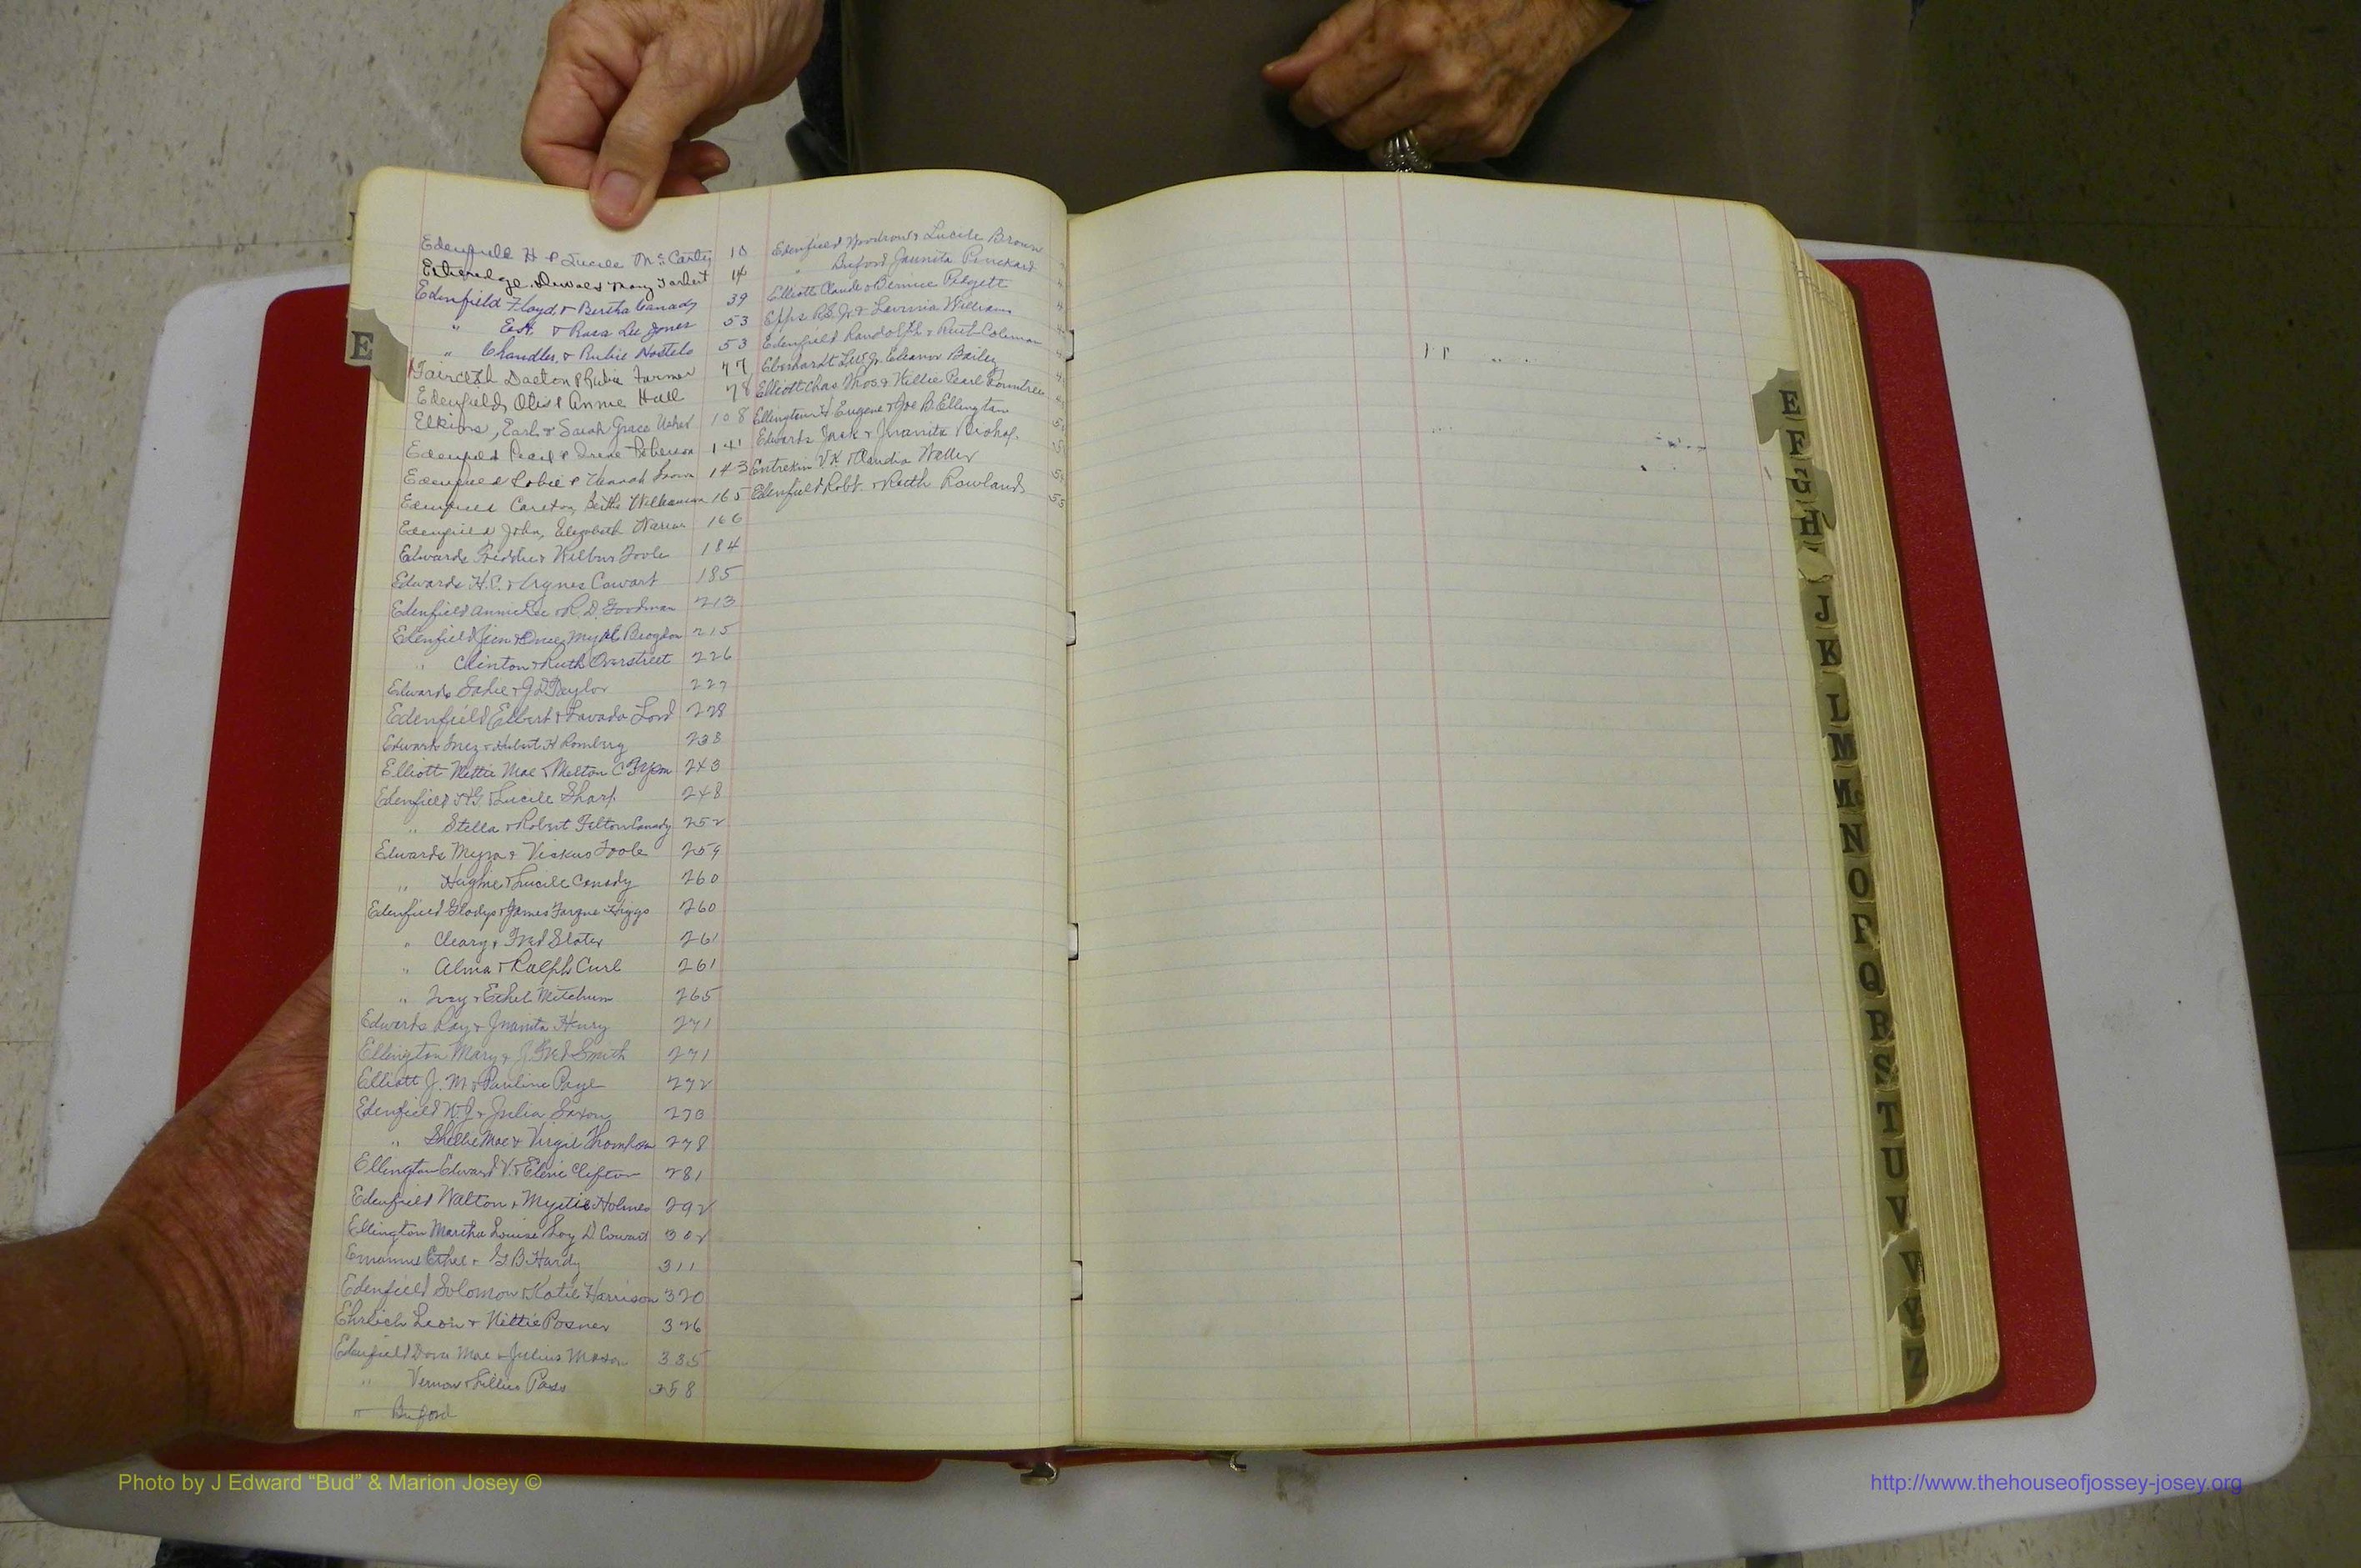 Edenfield H & Lucile McCarty 10
Etheridge, Dewald & Mary Tarbert 14
Edenfield Floyd & Bertha Canady 39
" & Rosa Lee Jones 53
" Chandler & Rubie 53
Faircloth Dalton Farmer 77
Edenfield, Otis & Annie Hall 78
Elkins, Earl & Sarah Grace Usher 108
Edenfield Pearl & Irene 141
Edenfield & Hannah 143
Edenfield Carlton, Bertha Williamson 165
Edenfield John, Elizabeth 166
Edwards Freddie & Wilbur Toole 184
Edwards H.C. & Agnes Cowart 185
Edenfield Annie Lee & R. D. Goodman 213
Edenfield Jim & Brogdon 215
" Clinton & Ruth Overstreet 226
Edwards Sadie & J D Taylor 227
Edenfield Elbert & Lavada Lord 228
Edwards Inez & Hubert H Romberg 238
Elliott Mettie Mae & Melton C Tyson 243
Edenfield H G. & Lucile Sharp 248
" Stella & Robert Felton Canady 252
Edwards Myra & Toole 259
" Hughie & Lucile Canady 260
Edenfield Gladys & James Higgs 260
" Cleary & Fred Slater 261
" Alma & Ralph Curl 261
" Ivey & Ethel Mitchum 265
Edwards Ray & Juanita Henry 271
Ellington Mary & J. Fred Smith 271
Elliott J. M. & Pauline Page 272
Edenfield W. J. & Julia Saxon 273
" Shellie Mae & Virgil Thompson 278
Ellington Edward V. & Clifton 281
Edenfield Walton & Myrtis Holmes 292
Ellington Martha Louise & Loy D. Cowart 302
Ethel & G B Hardy 311
Edenfield Solomon & Katie Harrison 320
Ehrlich Leon & Nettie Posner 326
Edenfield Dora Mae & Julius Mason 335
" Vernon & Lillie 358
" Buford
Edenfield Woodrow & Lucile Brown
" Buford Jaunita Pinckard
Elliott Claude & Bernice Padgett
Epps R.S. Jr & Lavinia Williams
Edenfield Randolph & Ruth Coleman
Eberhardt Jr Eleanor Bailey
Elliott Chas Thos & Nellie Pearl Rountree
Ellington H Eugene & Joe B. Ellington
Edwards Jack & Juanita Bishop
Entrekin V K & Claudia Waller
Edenfield Robt. & Ruth Rowland
E
E
F
G
H
J
K
L
M
Mc
N
O
P
Q
R
S
T
U
V
W
Y
Z
Photo by J Edward “Bud” & Marion Josey ©
http://www.thehouseofjossey-josey.org